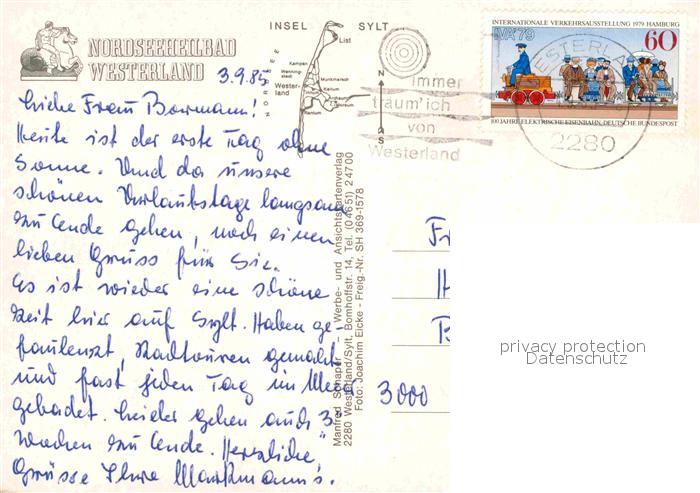 NORDSEEHEILBAD
WESTERLAND
INSEL SYLT
NORDSEE
List
Kampen
Wenning-
stedt
Wester-
land
Munkmarsch
Keitum
Archsum
Morsum
Rantum
N
S
immer
träum' ich
von
Westerland
WESTERLAND
2280
INTERNATIONALE VERKEHRSAUSSTELLUNG 1979 HAMBURG
IVA'79
60
100 JAHRE ELEKTRISCHE EISENBAHN, DEUTSCHE BUNDESPOST
3.9.85
Liebe Frau Bormann!
Heute ist der erste Tag ohne
Sonne. Und da unsere
schönen Urlaubstage langsam
zu Ende gehen, noch einen
lieben Gruss für Sie.
Es ist wieder eine schöne
Zeit hier auf Sylt. Haben ge-
faulenzt, Radtouren gemacht
und fast jeden Tag im Meer
gebadet. Leider gehen auch 3
Wochen zu Ende. Herzliche
Grüsse Ihre Markmann's.
Manfred Schaper – Werbe- und Ansichtskartenverlag
2280 Westerland/Sylt, Bomhoffstr. 14, Tel. (04651) 24700
Foto: Joachim Eicke - Freig.-Nr. SH 369-1578
Fr
H
B
3000
privacy protection
Datenschutz